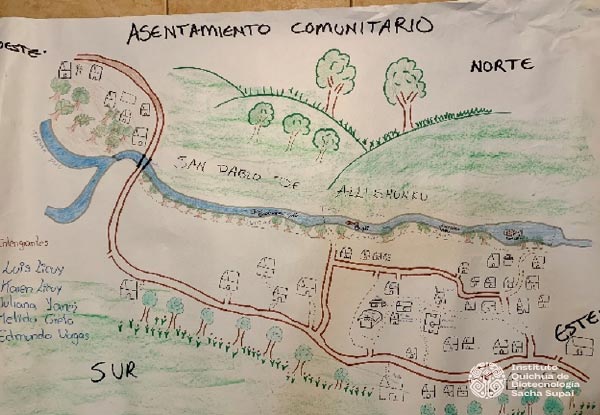 ASENTAMIENTO COMUNITARIO
OESTE.
NORTE
SAN PABLO DE ALLI SHUNKU
Integrantes
Luis Licuy
Karen Licuy
Yuliana
Melida
Edmundo Vargas
ESTE.
SUR
Instituto
Quichua de
Biotecnología
Sacha Supai